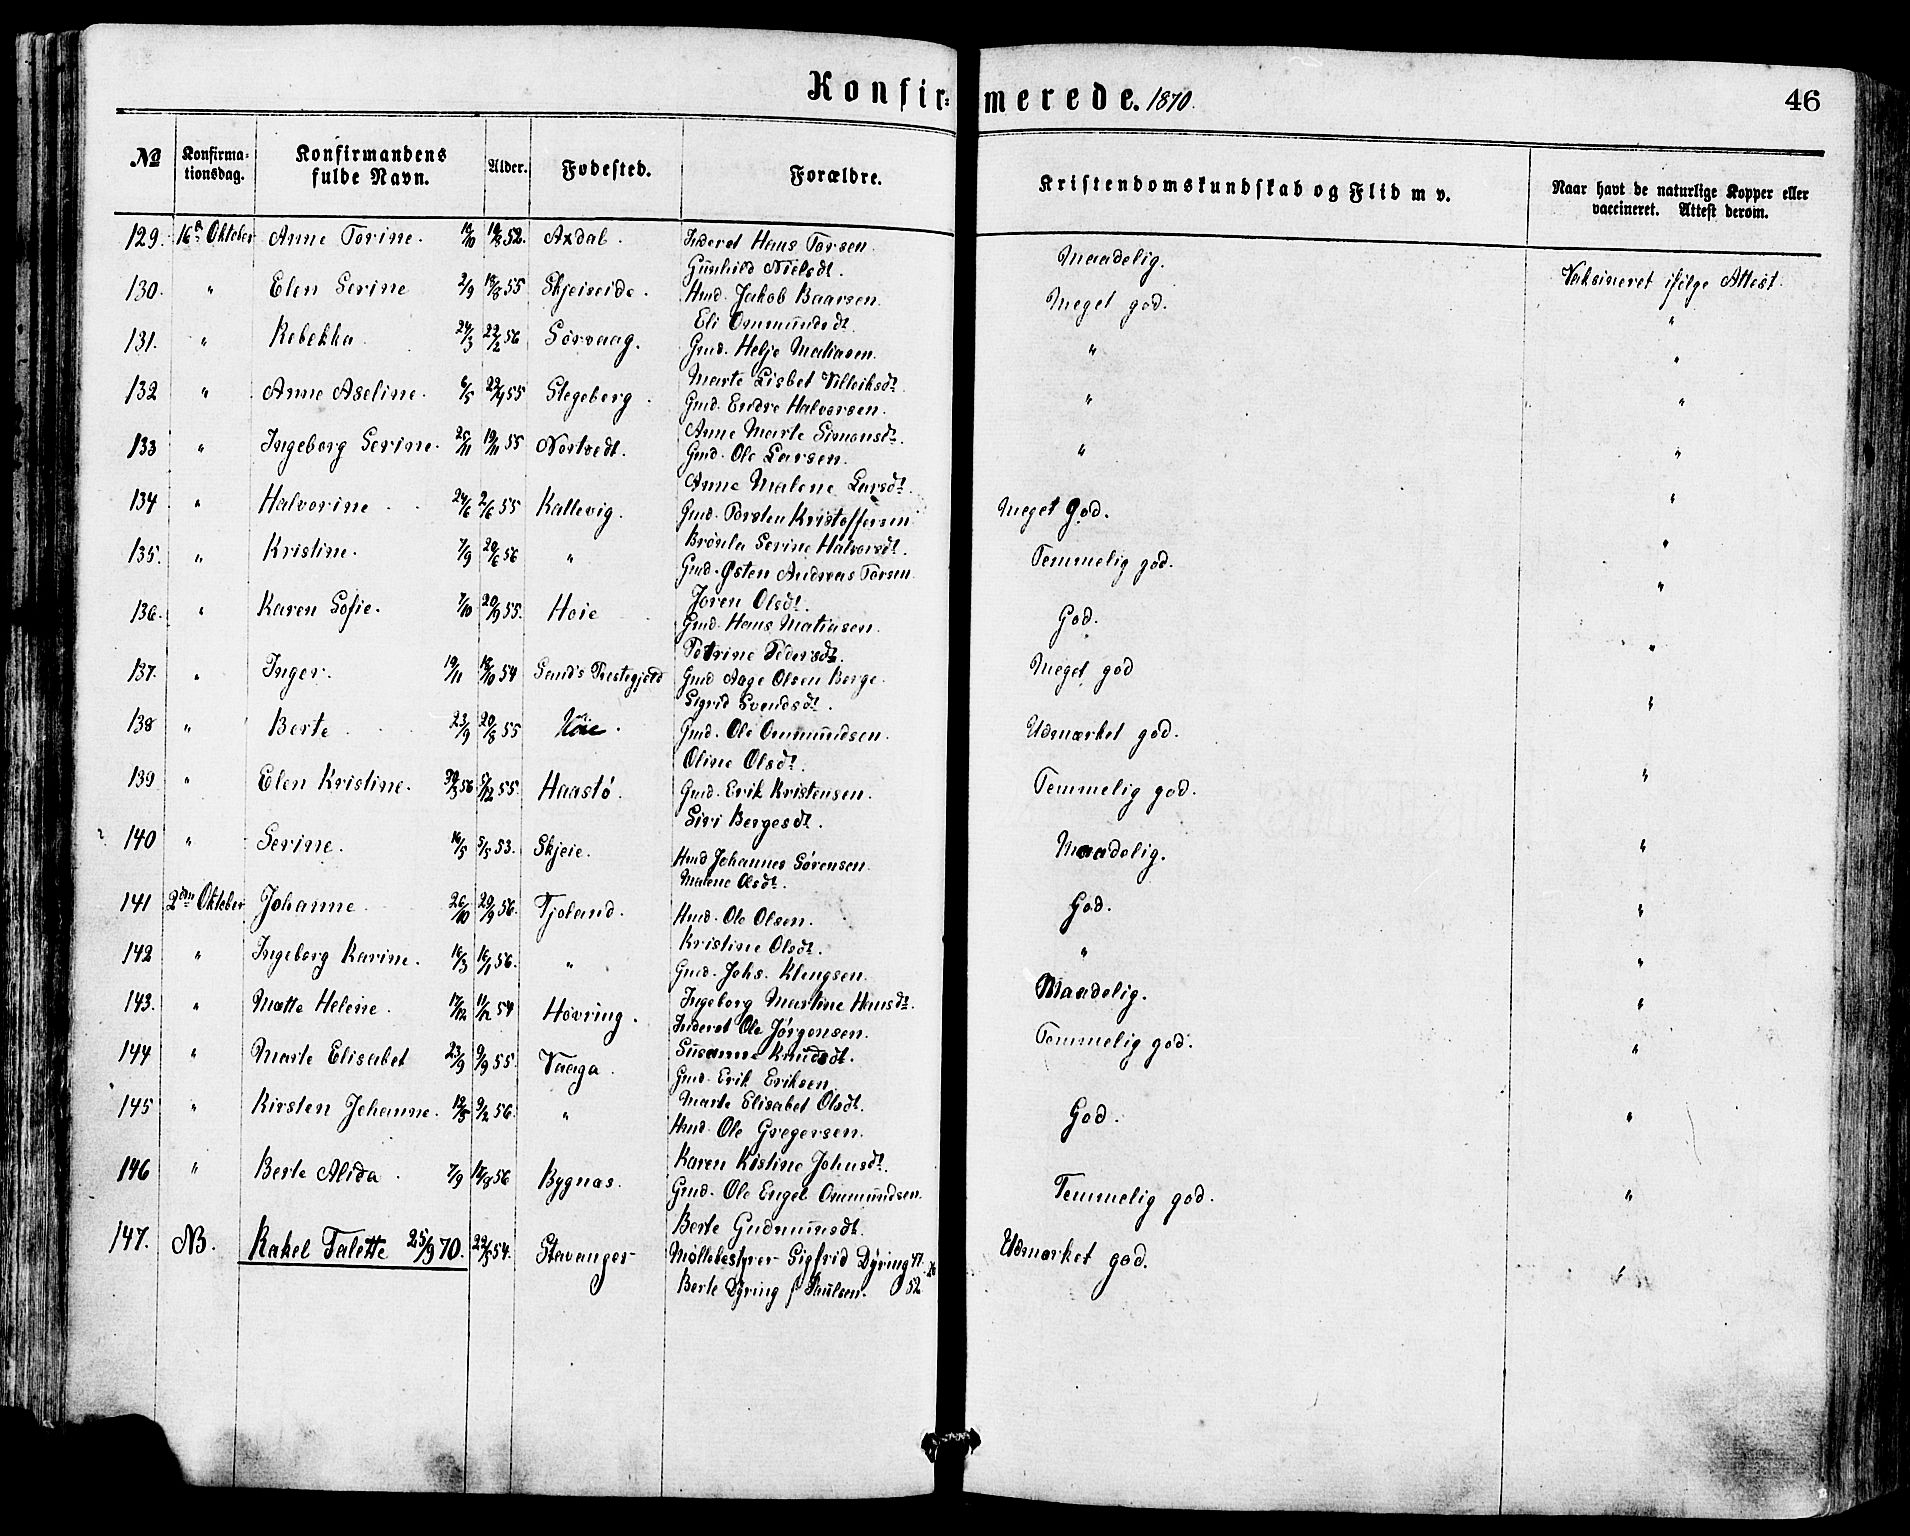 Konfirmerede. 1870. 46
No Konfirmationsdag. Konfirmandens fulde Navn. Alder. Fødested. Forældre. Kristendomskundskab og Flid m v. Naar havt de naturlige Kopper eller vaccineret. Attest derom.
129. 16de Oktober Anne Torine. 52. Axdal. Inderst Hans Torsen. Maadelig. Vaksineret ifølge Attest.
Gunhild Nielsdt.
130. " Elen Serine 2/9 55 Skjeiseide. Hmd. Jakob Baarsen. Meget god. "
Eli Ommundsdt.
131. " Rebekka 22/2 56 Sørvaag. Gmd. Helje Matiasen. " "
Marte Lisbet Villeiksdt.
132 " Anne Aseline. 6/5 55 Stegeberg. Gmd. Endre Halvorsen. " "
Anne Marte Simonsdt.
133 " Ingeborg Serine. 19/11 55 Nortvedt. Gmd. Ole Larsen. " "
Anne Malene Larsdt.
134 " Halvorine 24/6 2/6 55 Kallevig. Gmd. Torsten Kristoffersen Meget god. "
Brønla Serine Halvorsdt.
135. " Kristine. 7/9 20/6 56 " Gmd. Østen Andreas Torsen Temmelig god. "
Joren Olsdt.
136. " Karen Sofie. 7/10 20/9 55. Hoie Gmd. Hans Matiasen. God. "
Petrine Pedersdt.
137. " Inger. 19/11 18/10 54 Sands Prestegjeld Gmd Aage Olsen Berge. Meget god "
Sigrid Svendsdt.
138 " Berte 23/9 20/8 55 Høie. Gmd. Ole Ommundsen. Udmærket god. "
Oline Olsdt.
139 " Elen Kristine. 30/3 56 5/12 55. Haastø. Gmd. Erik Kristensen. Temmelig god. "
Siri Bergesdt.
140 " Serine. 16/5 5/5 53. Skjeie. Hmd Johannes Sørensen. Maadelig. "
Malene Olsdt.
141 2den Oktober Johanne 26/10 29/9 56. Tjoland. Hmd. Ole Olsen. God. "
Kristine Olsdt.
142 " Ingeborg Karine. 16/3 16/1 56. " Gmd. Johs. Klengsen. " "
Ingeborg Martine Hansdt.
143. " Mætte Helene. 17/12 11/12 54 Høvring. Inderst Ole Jørgensen. Maadelig. "
Susanne Knudsdt.
144 " Marte Elisabet 23/9 9/9 55. Vaaga. Gmd. Erik Eriksen. Temmelig god. "
Marte Elisabet Olsdt.
145 " Kirsten Johanne. 12/5 9/2 56. " Hmd. Ole Gregersen. God. "
Karen Kistine Johnsdt.
146 " Berte Alida. 7/9 56 Bygnæs. Gmd. Ole Engel Ommundsen. Temmelig god. "
Berte Gudmunsdt.
147. NB. Rakel Talette 25/9 70. 54. Stavanger Møllebestyrer Sigfrid Dyring 47. Udmærket god. "
Berte Dyring f Paulsen. 52